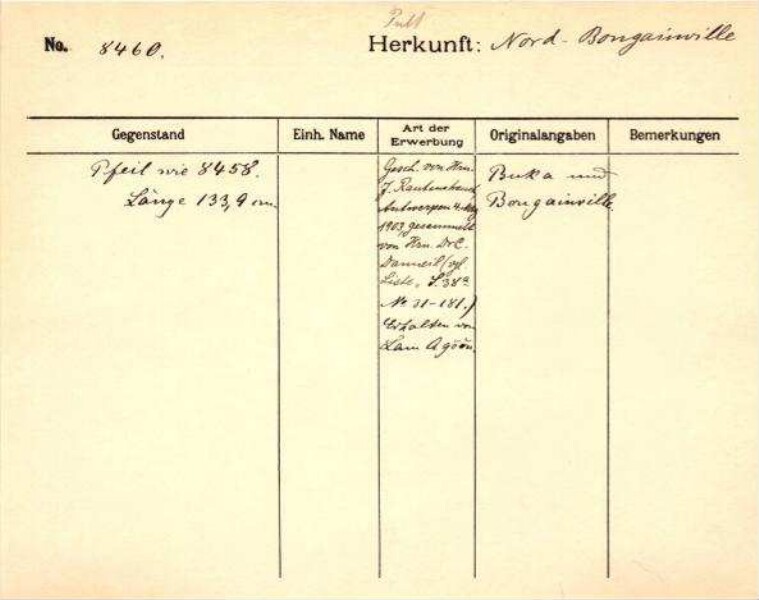 No. 8460.
Herkunft: Nord-Bougainville
Gegenstand
Einh. Name
Art der Erwerbung
Originalangaben
Bemerkungen
Pfeil wie 8458.
Länge 133,9 cm.
Gesch. von Hrn.
J. Rautenstrauch
Antwerpen 4. May
1903, gesammelt
von Hrn. Dr. C.
Danneil (vgl.
Liste, S. 38a
No 31-181.)
Erhalten von
Lam Agōōn.
Buka und
Bougainville.